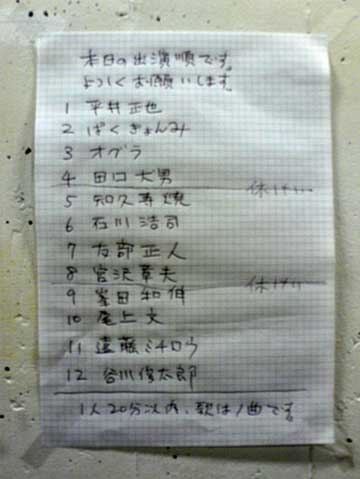 本日の出演順です。
よろしくお願いします。
1 平井正也
2 ぱくきょんみ
3 オグラ
4 田口犬男
休けい
5 知久寿焼
6 石川浩司
7 友部正人
8 宮沢章夫
休けい
9 峯田和伸
10 尾上文
11 遠藤ミチロウ
12 谷川俊太郎
1人20分以内、歌は1曲です。